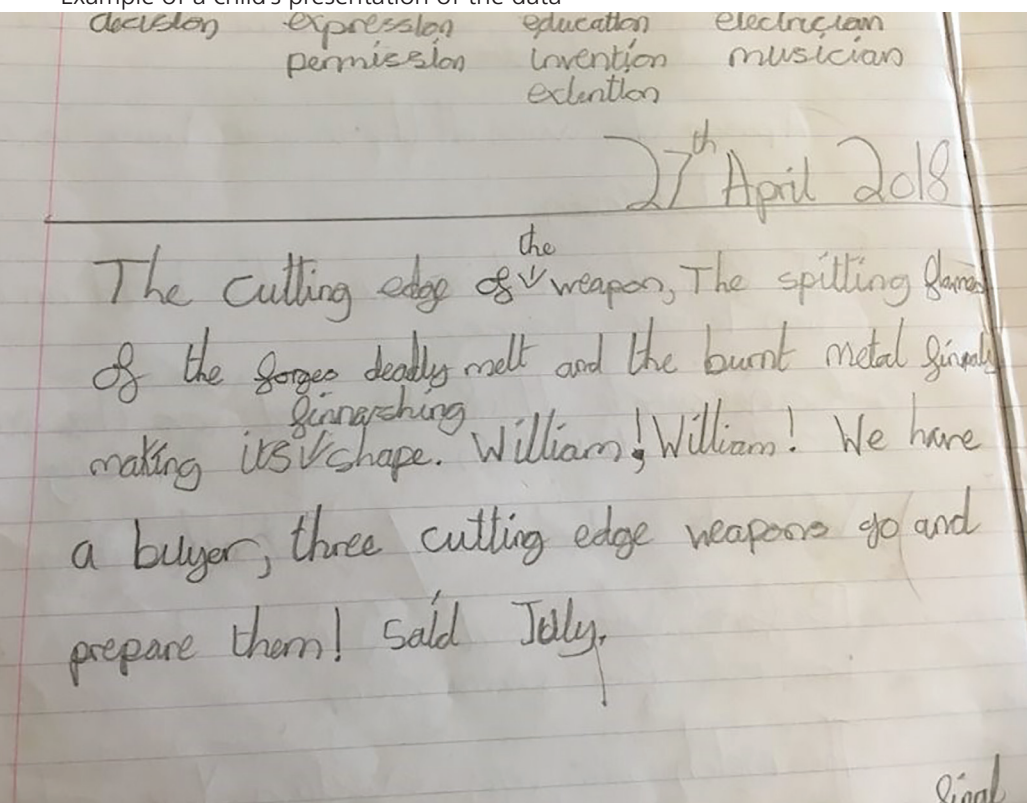 Example of a child's presentation of the data
decision expression education electrician
permission invention musician
extention
27th April 2018
the
The cutting edge of weapon, The spitting flames
of the forges deadly melt and the burnt metal
making its shape. William! William! We have
a buyer, three cutting edge weapons go and
prepare them! Said Jolly.
final